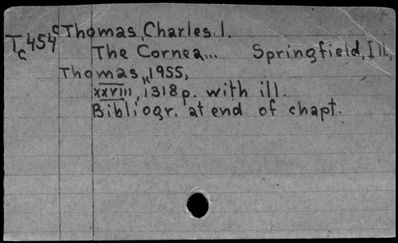 Tc454c Thomas, Charles I.
The Cornea... Springfield, Ill.,
Thomas, 1955,
xxviii, 1318 p. with ill.
Bibliogr. at end of chapt.